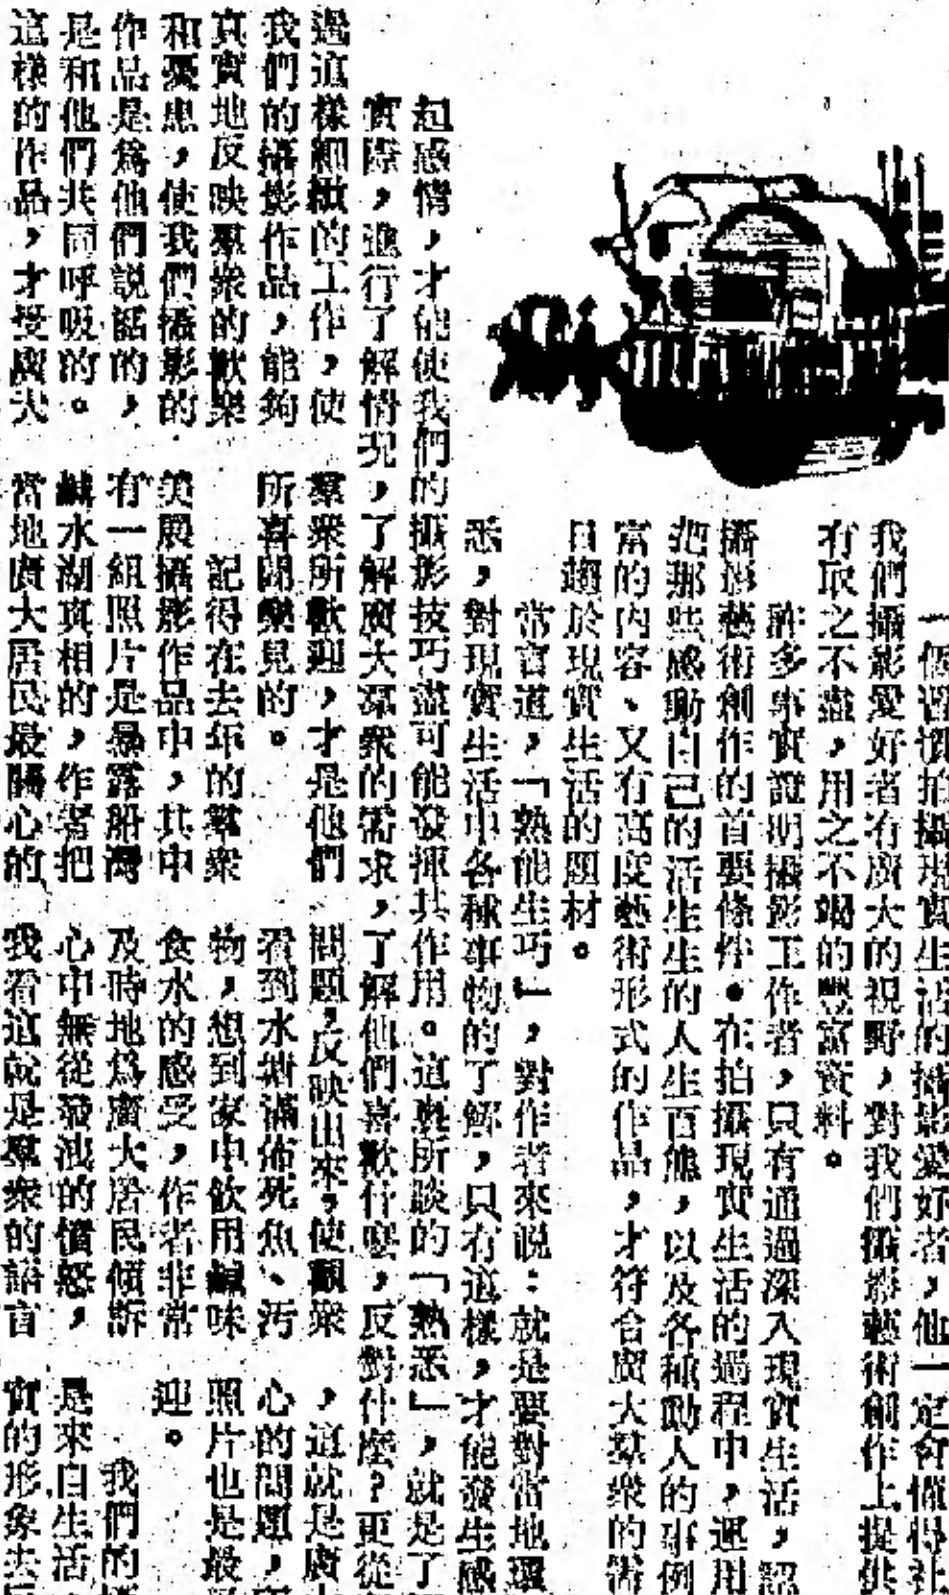 一個習慣拍攝現實生活的攝影愛好者，他一定會懂得社
我們攝影愛好者有廣大的視野，對我們攝影藝術創作上提供
有取之不盡，用之不竭的豐富資料。
許多事實證明攝影工作者，只有通過深入現實生活，認
攝影藝術創作的首要條件。在拍攝現實生活的過程中，運用
把那些感動自己的活生生的人生百態，以及各種動人的事例
富的內容、又有高度藝術形式的作品，才符合廣大羣衆的需
日趨於現實生活的題材。
常言道，「熟能生巧」，對作者來說：就是要對當地環
悉，對現實生活中各種事物的了解，只有這樣，才能發生感
起感情，才能使我們的攝影技巧盡可能發揮其作用。這裏所談的「熟悉」，就是了
實際，進行了解情況，了解廣大羣衆的需求，了解他們喜歡什麼，反對什麼？更從
過這樣細緻的工作，使
我們的攝影作品，能夠
真實地反映羣衆的歡樂
和憂患，使我們攝影的
作品是爲他們説話的，
是和他們共同呼吸的。
這樣的作品，才受廣大
羣衆所歡迎，才是他們
所喜聞樂見的。
記得在去年的羣衆
美展攝影作品中，共中
有一組照片是暴露船灣
鹹水湖真相的，作者把
當地廣大居民最關心的
問題，反映出來，使觀衆
看到水塘滿佈死魚、污
物，想到家中飲用鹹味
食水的感受，作者非常
及時地爲廣大居民傾訴
心中無從發洩的憤怒，
我看這就是羣衆的語言
，這就是廣
心的問題，
照片也是最
迎。
我們的
是來自生活
實的形象去